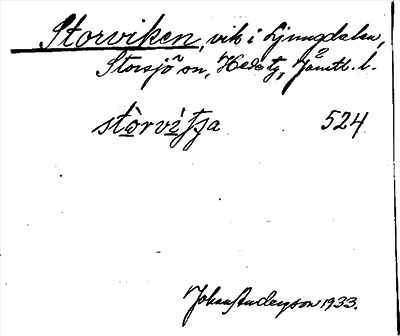 Storviken, vik i Ljungdalen,
Storsjö sn, Hede tg, Jämtl. l.
stòrvìtja 524
Johan Anderson 1933.